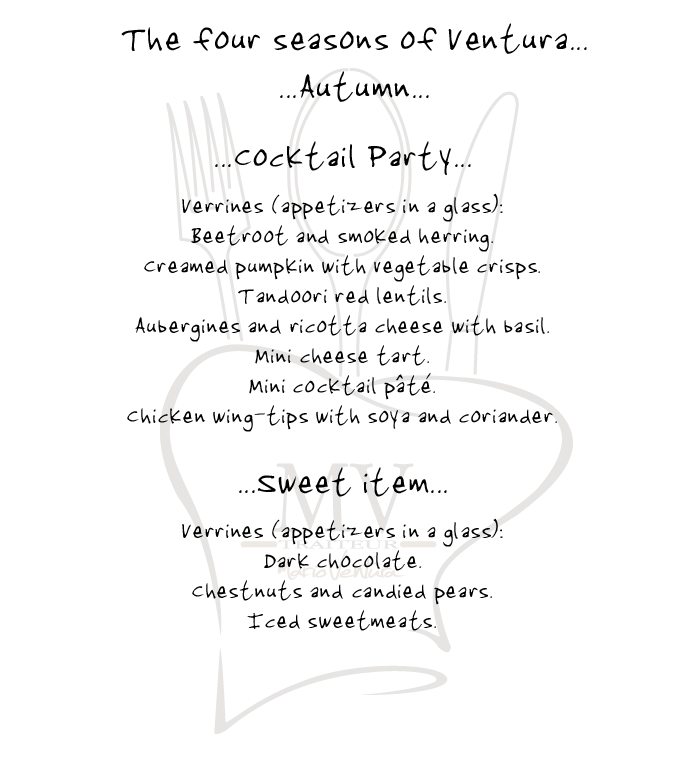 The four seasons of Ventura...
...Autumn...
...Cocktail Party...
Verrines (appetizers in a glass):
Beetroot and smoked herring.
Creamed pumpkin with vegetable crisps.
Tandoori red lentils.
Aubergines and ricotta cheese with basil.
Mini cheese tart.
Mini cocktail pâté.
Chicken wing-tips with soya and coriander.
...Sweet item...
MV
Verrines (appetizers in a glass):
TRAITEUR
Dark chocolate.
Mario Ventura
Chestnuts and candied pears.
Iced sweetmeats.